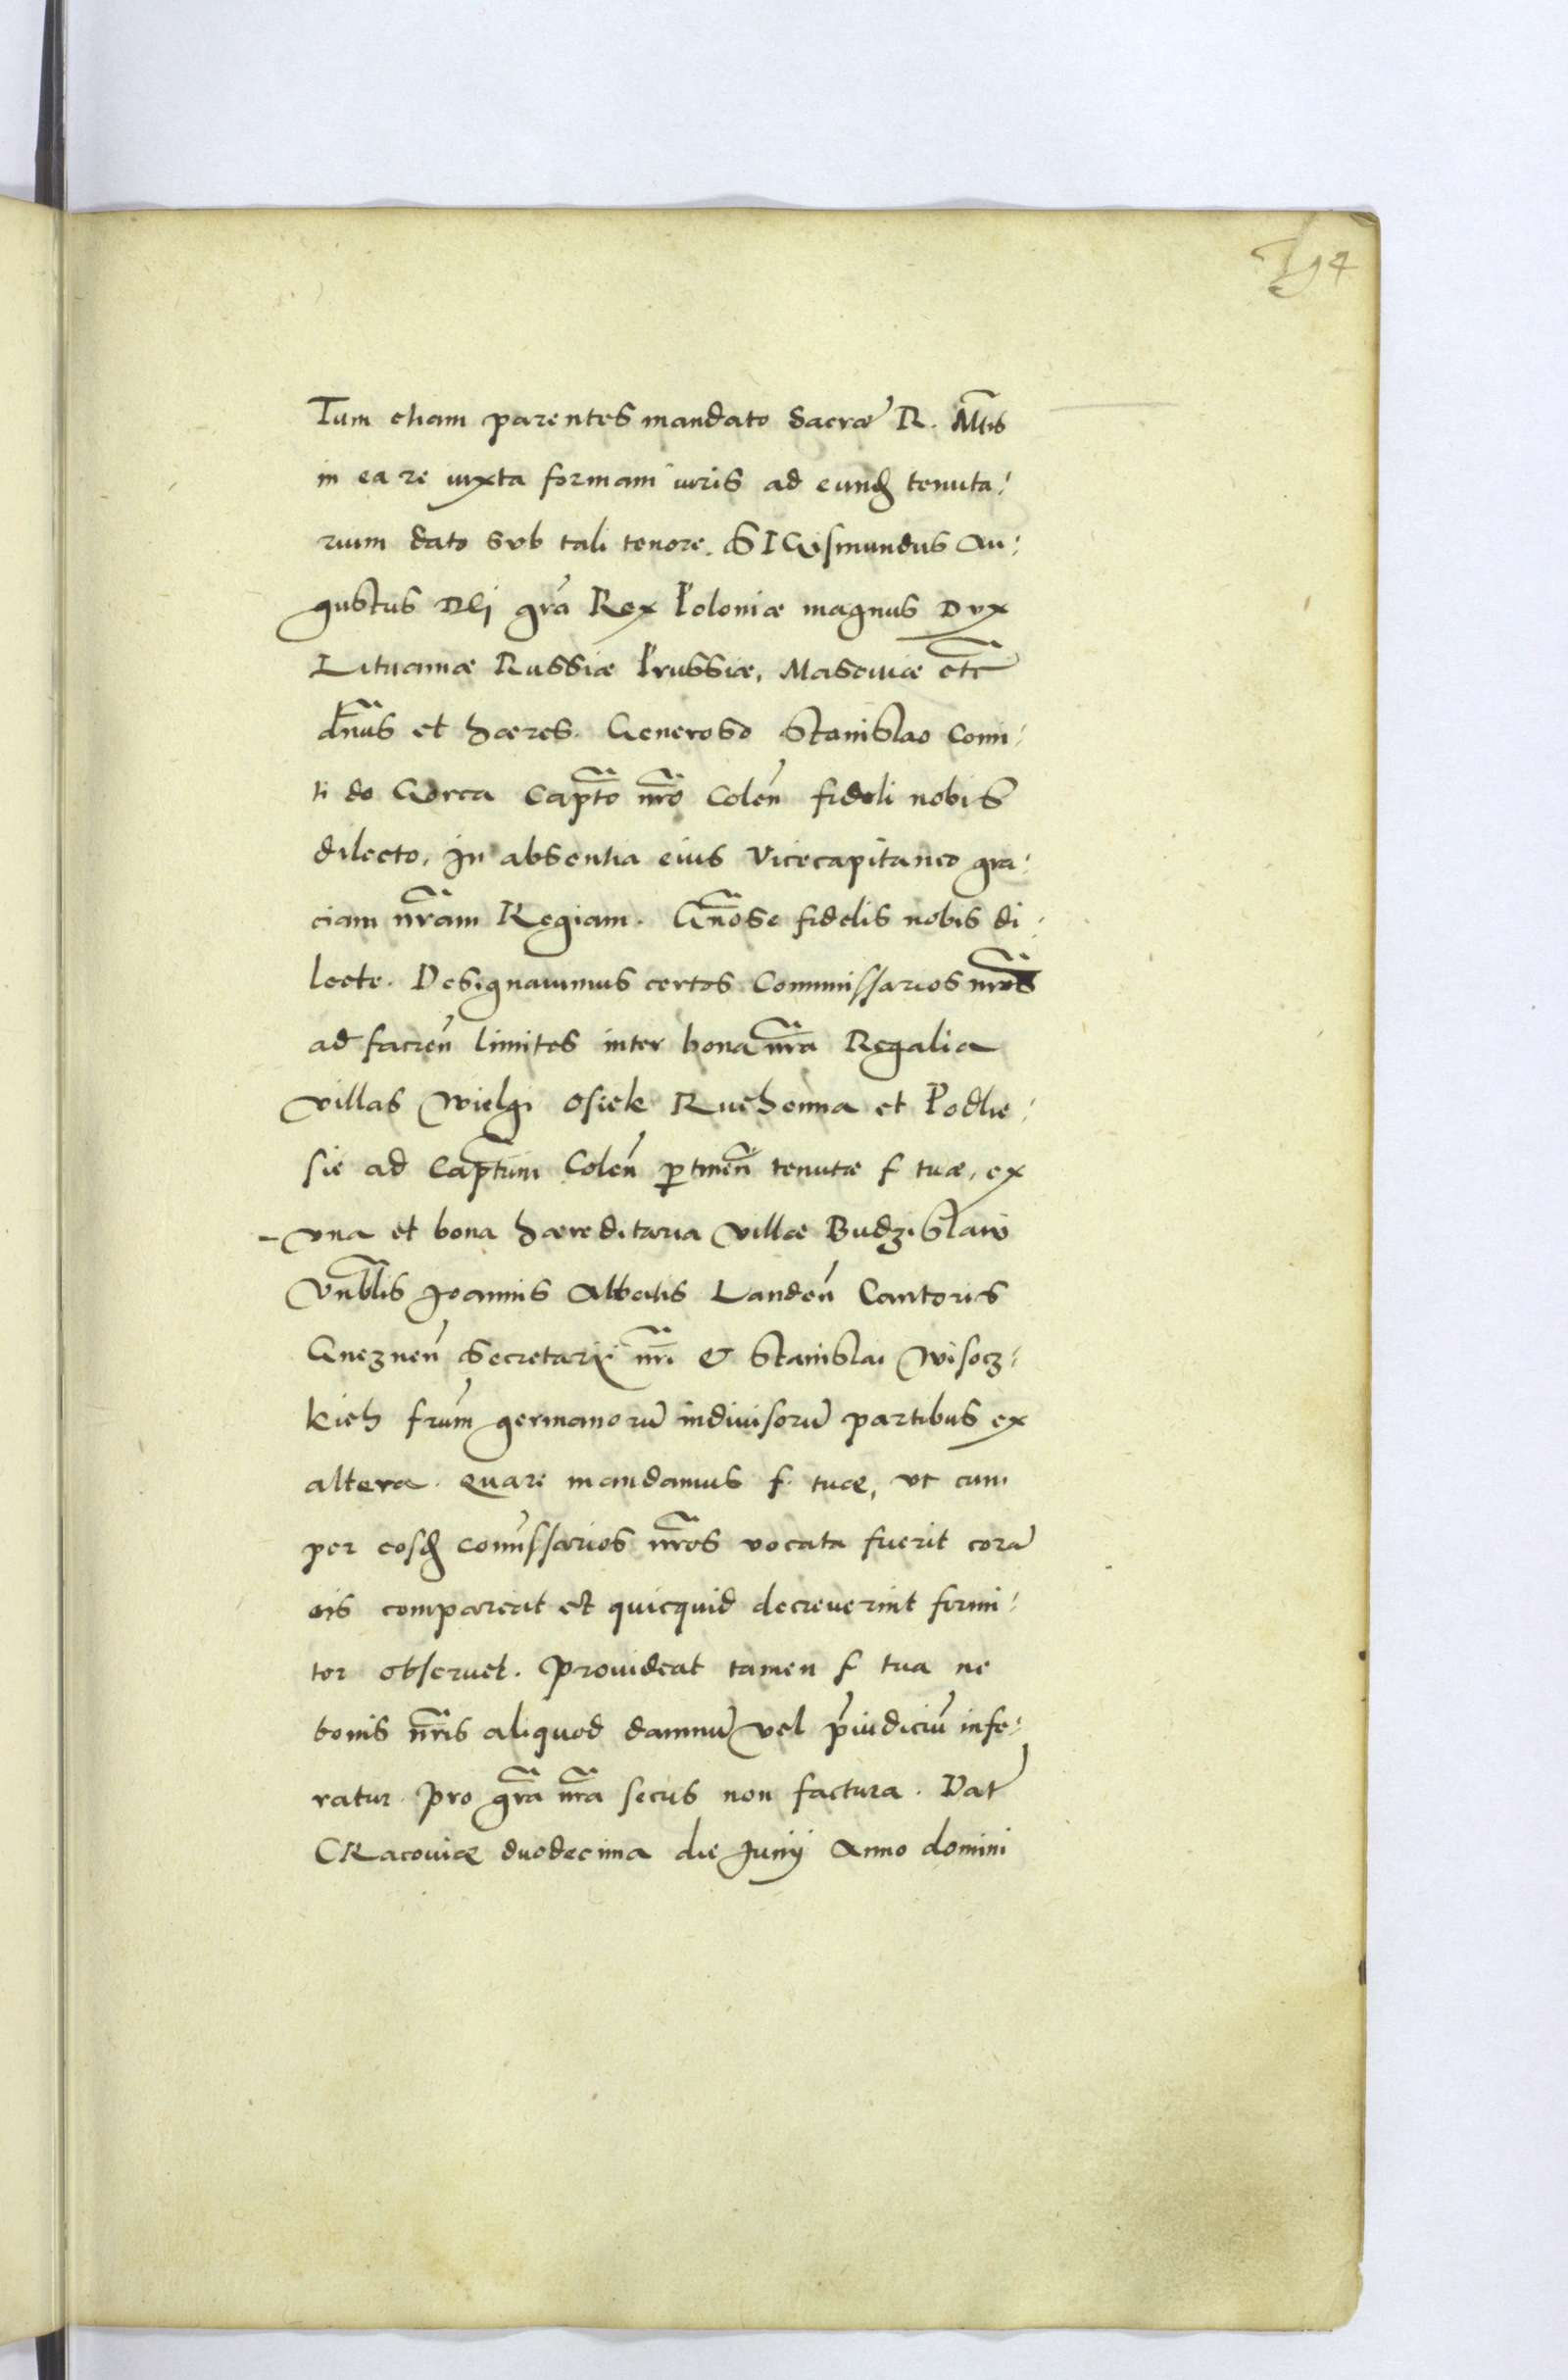 Tum etiam parentes mandato Sacræ R. Mtis
in ea re iuxta formam iuris ad eund tenuta:
rium dato sub tali tenore. SIGismundus Au:
gustus Dei gra Rex Poloniæ magnus Dux
Lituaniæ Russiæ Prussiæ, Masouiæ etc
dnus et hæres. Generoso Stanislao Comi:
ti de Gorca Capto nro Colen fideli nobis
dilecto, In absentia eius Vicecapitaneo gra:
ciam nram Regiam. Gnose fidelis nobis di:
lecte. Designauimus certos Commissarios nros
ad facien limites inter bona nra Regalia
villas Wielgi Osiek Ruchenna et Podlie:
sie ad Captum Colen ptinen tenutæ f tuæ, ex
vna et bona hæreditaria villæ Budzislaw
Vnblis Joannis Abbatis Landen Cantoris
Gneznen Secretarii nri & Stanislai Wisocz:
kich frum germanorum indiuisorum partibus ex
altera. Quare mandamus f. tuæ, vt cum
per eosd comissarios nros vocata fuerit coram
eis compareat et quicquid decreuerint firmi:
ter obseruet. Prouideat tamen f tua ne
bonis nris aliquod damnum vel piudicium infe:
ratur. Pro gra nra secus non factura. Dat
CRacouiæ duodecima die Junij Anno domini